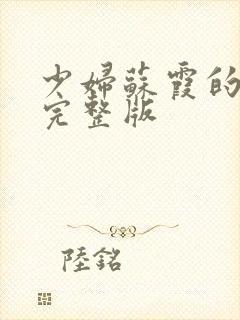 少婦蘇霞的
完整版
陸銘